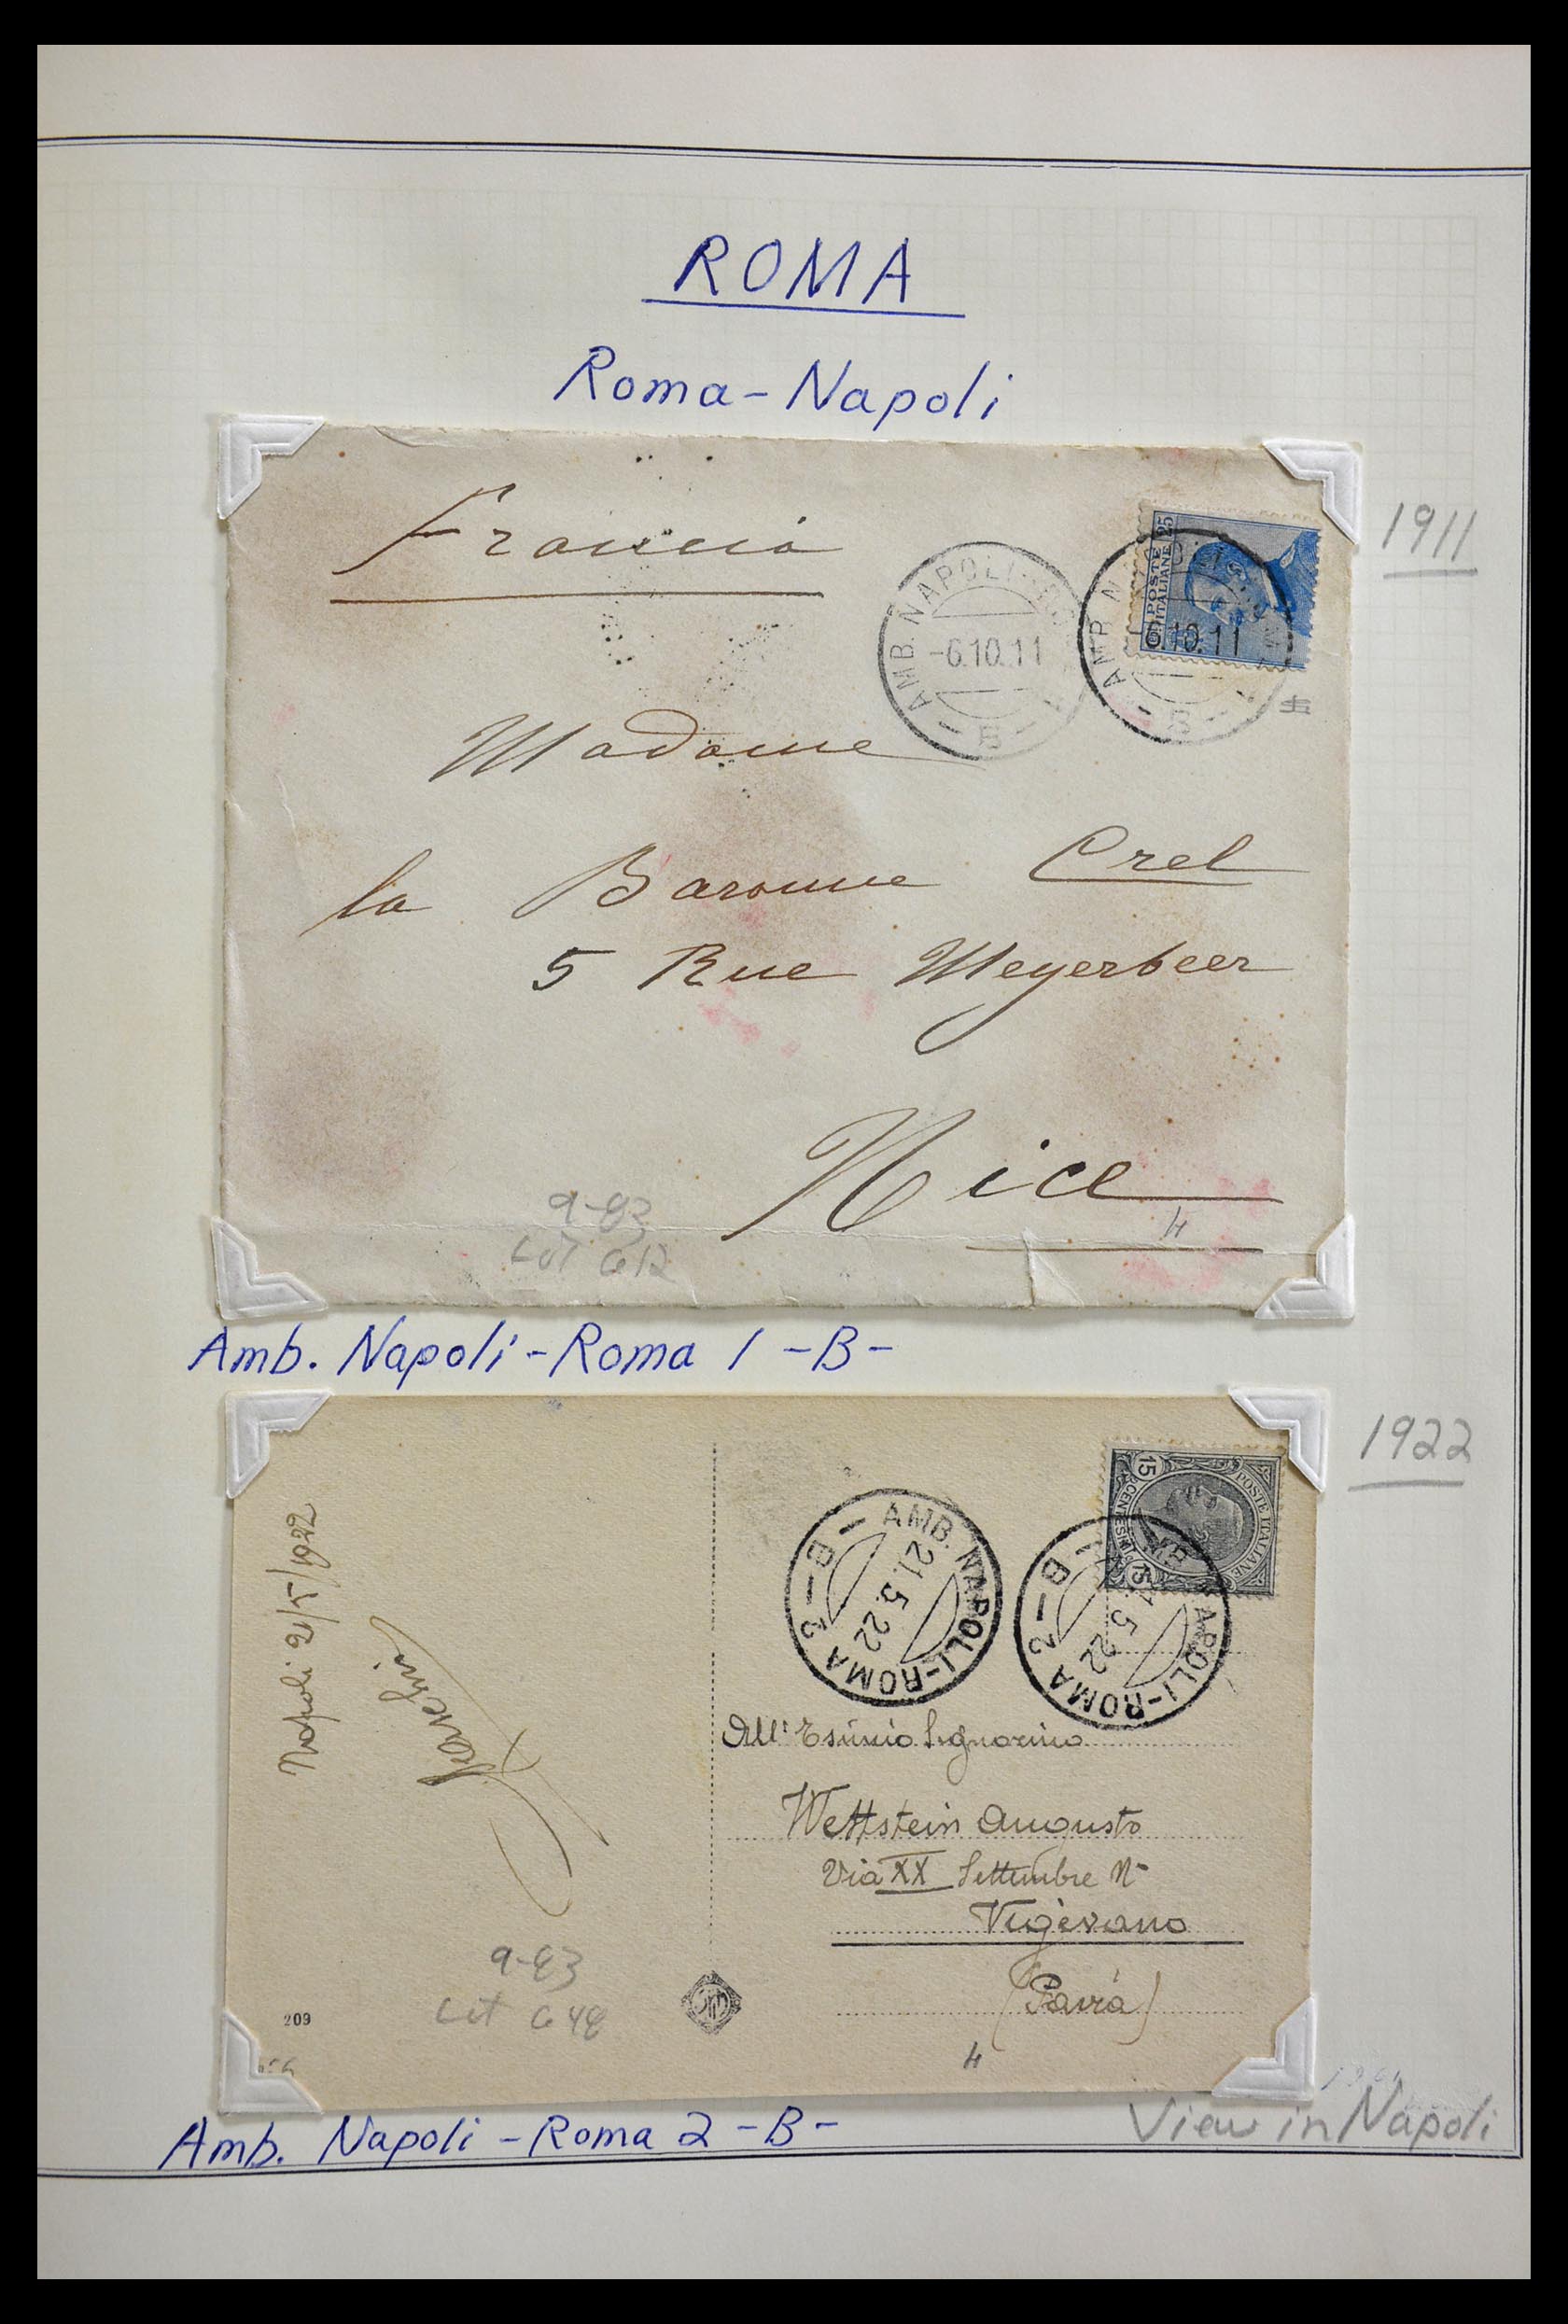 ROMA
Roma-Napoli
1911
Francia
POSTE ITALIANE 25
AMB. NAPOLI-RO
-6.10.11
- B -
AMB. N
6.10.11
- B -
Madame
la Baronne Crel
5 Rue Meyerbeer
Nice
4
9-83
Lot 612
Amb. Napoli-Roma 1 -B-
1922
POSTE ITALIANE
15 CENTESIMI 15
AMB. NAPOLI-ROMA 2 - B -
21.5.22
APOLI-ROMA 2 - B -
21.5.22
Napoli 21/5/1922
All' Esimio Signorino
Wettstein Augusto
Via XX Settembre N-
Vigèvano
(Pavia)
9-83
Lot 648
209
4
View in Napoli
Amb. Napoli-Roma 2 -B-